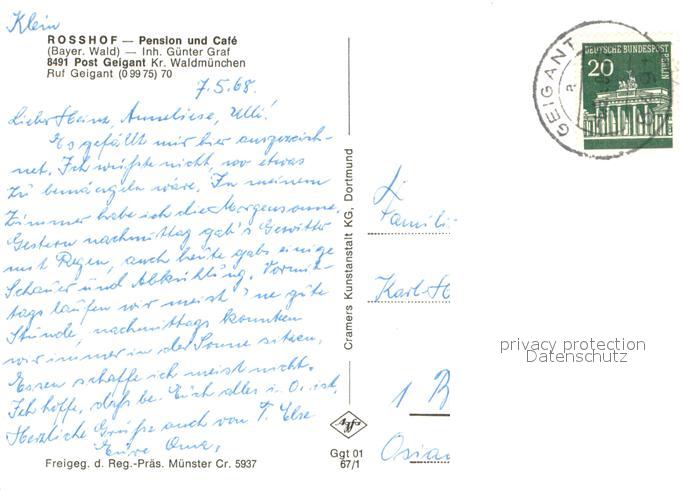 Klein
ROSSHOF — Pension und Café
(Bayer. Wald) — Inh. Günter Graf
8491 Post Geigant Kr. Waldmünchen
Ruf Geigant (0 99 75) 70
7.5.68.
Lieber Heinz, Anneliese, Ulli!
Es gefällt mir hier ausgezeich-
net. Ich wüßte nicht, wo etwas
zu bemängeln wäre. In meinem
Zimmer habe ich die Morgensonne.
Gestern nachmittag gab's Gewitter
mit Regen, auch heute gabs einige
Schauer und Abkühlung. Vormit-
tags laufen wir meist 'ne gute
Stunde, nachmittags konnten
wir immer in der Sonne sitzen.
Essen schaffe ich meist nicht.
Ich hoffe, daß bei Euch alles i. O. ist.
Herzliche Grüße auch von T. Else
Eure Oma.
Freigeg. d. Reg.-Präs. Münster Cr. 5937
Cramers Kunstanstalt KG, Dortmund
Agfa
Ggt 01
67/1
GEIGANT
a
DEUTSCHE BUNDESPOST
BERLIN
20
Famili
Karl-H
1 B
Osian
privacy protection
Datenschutz